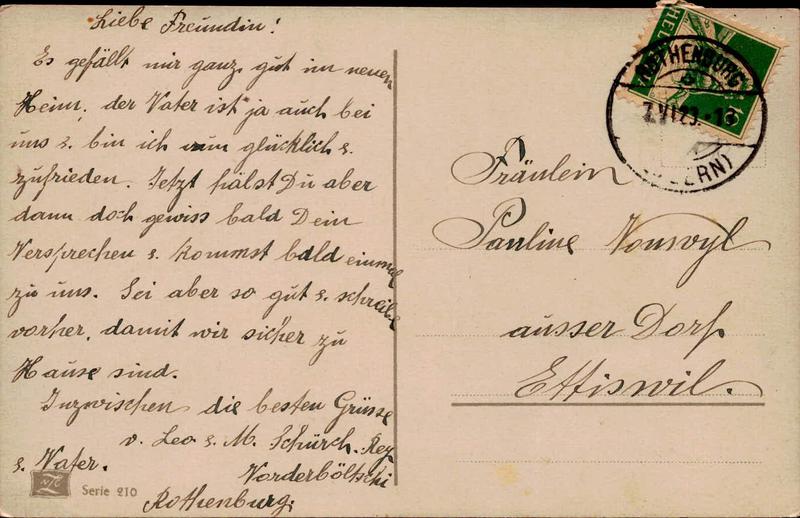 Liebe Freundin!
Es gefällt mir ganz gut im neuen
Heim, der Vater ist ja auch bei
uns s. bin ich nun glücklich s.
zufrieden. Jetzt hälst Du aber
dann doch gewiss bald Dein
Versprechen s. kommst bald einmal
zu uns. Sei aber so gut s. schreibe
vorher, damit wir sicher zu
Hause sind.
Inzwischen die besten Grüsse
v. Leo s. M. Schürch.
s. Vater.
Vorderböltschi
Rothenburg.
Serie 210
HEL
ROTHENBURG
7.VI.23.
(LUZERN)
Fräulein
Pauline Vonwyl
ausser Dorf
Ettiswil.